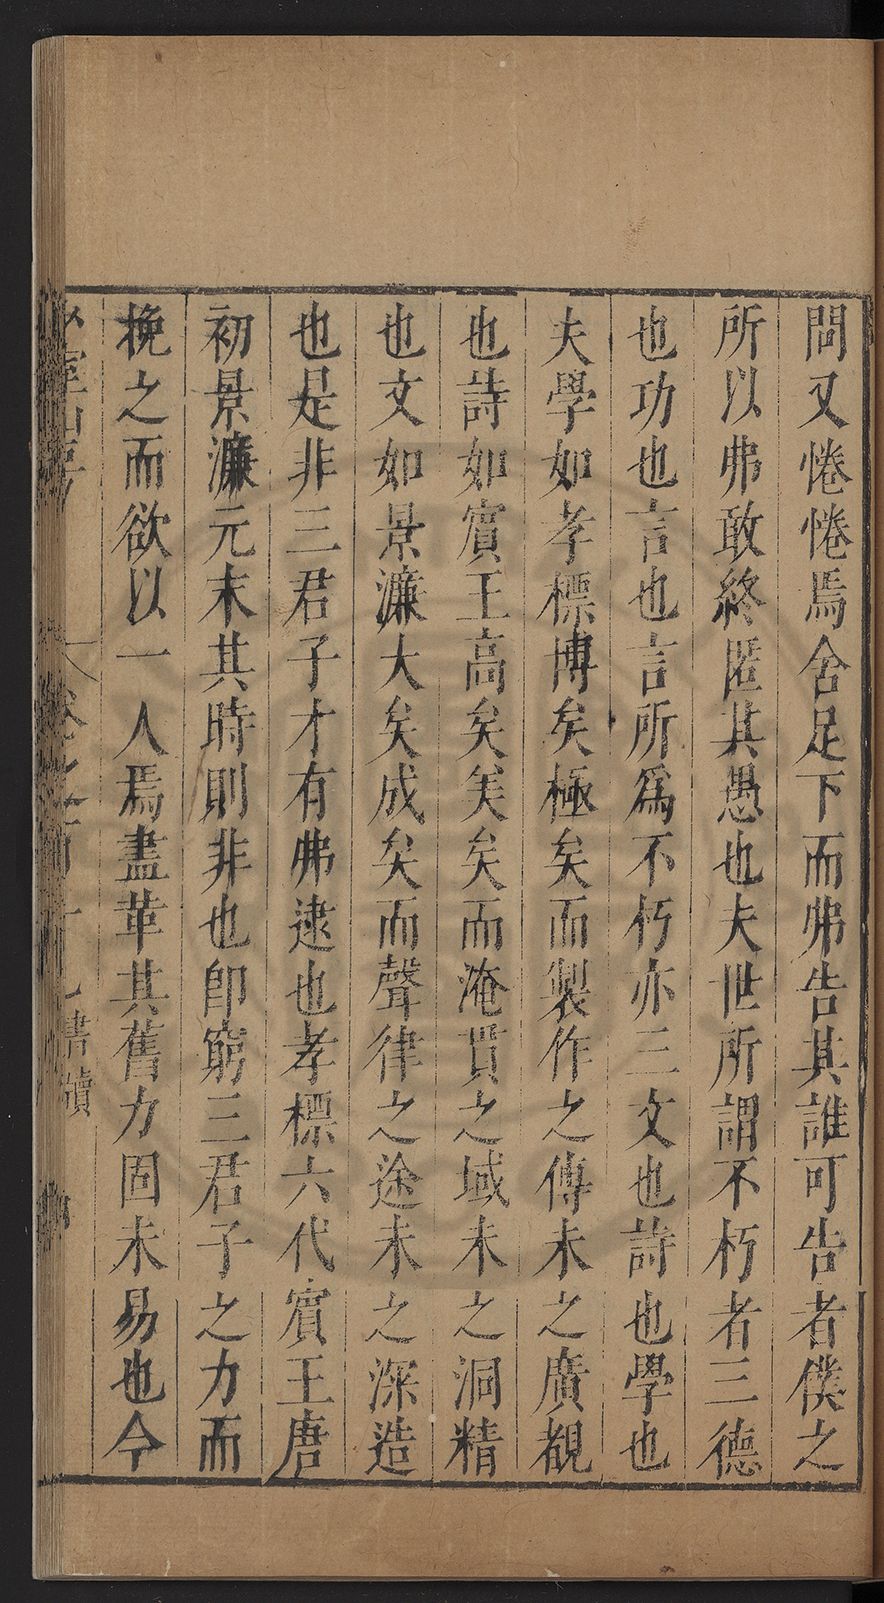 問又惓惓焉舍足下而弗告其誰可告者僕之
所以弗敢終匿其愚也夫世所謂不朽者三德
也功也言也言所爲不朽亦三文也詩也學也
夫學如孝標博矣極矣而製作之傳未之廣覩
也詩如賓王高矣美矣而淹貫之域未之洞精
也文如景濂大矣成矣而聲律之途未之深造
也是非三君子才有弗逮也孝標六代賓王唐
初景濂元末其時則非也卽窮三君子之力而
挽之而欲以一人焉盡革其舊力固未易也今
書牘